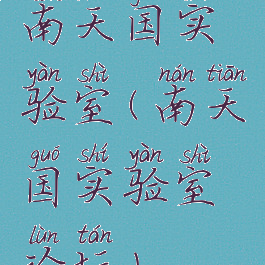 南天国实
yàn shì nán tiān
验室(南天
guó shí yàn shì
国实验室
lùn tán
论坛)